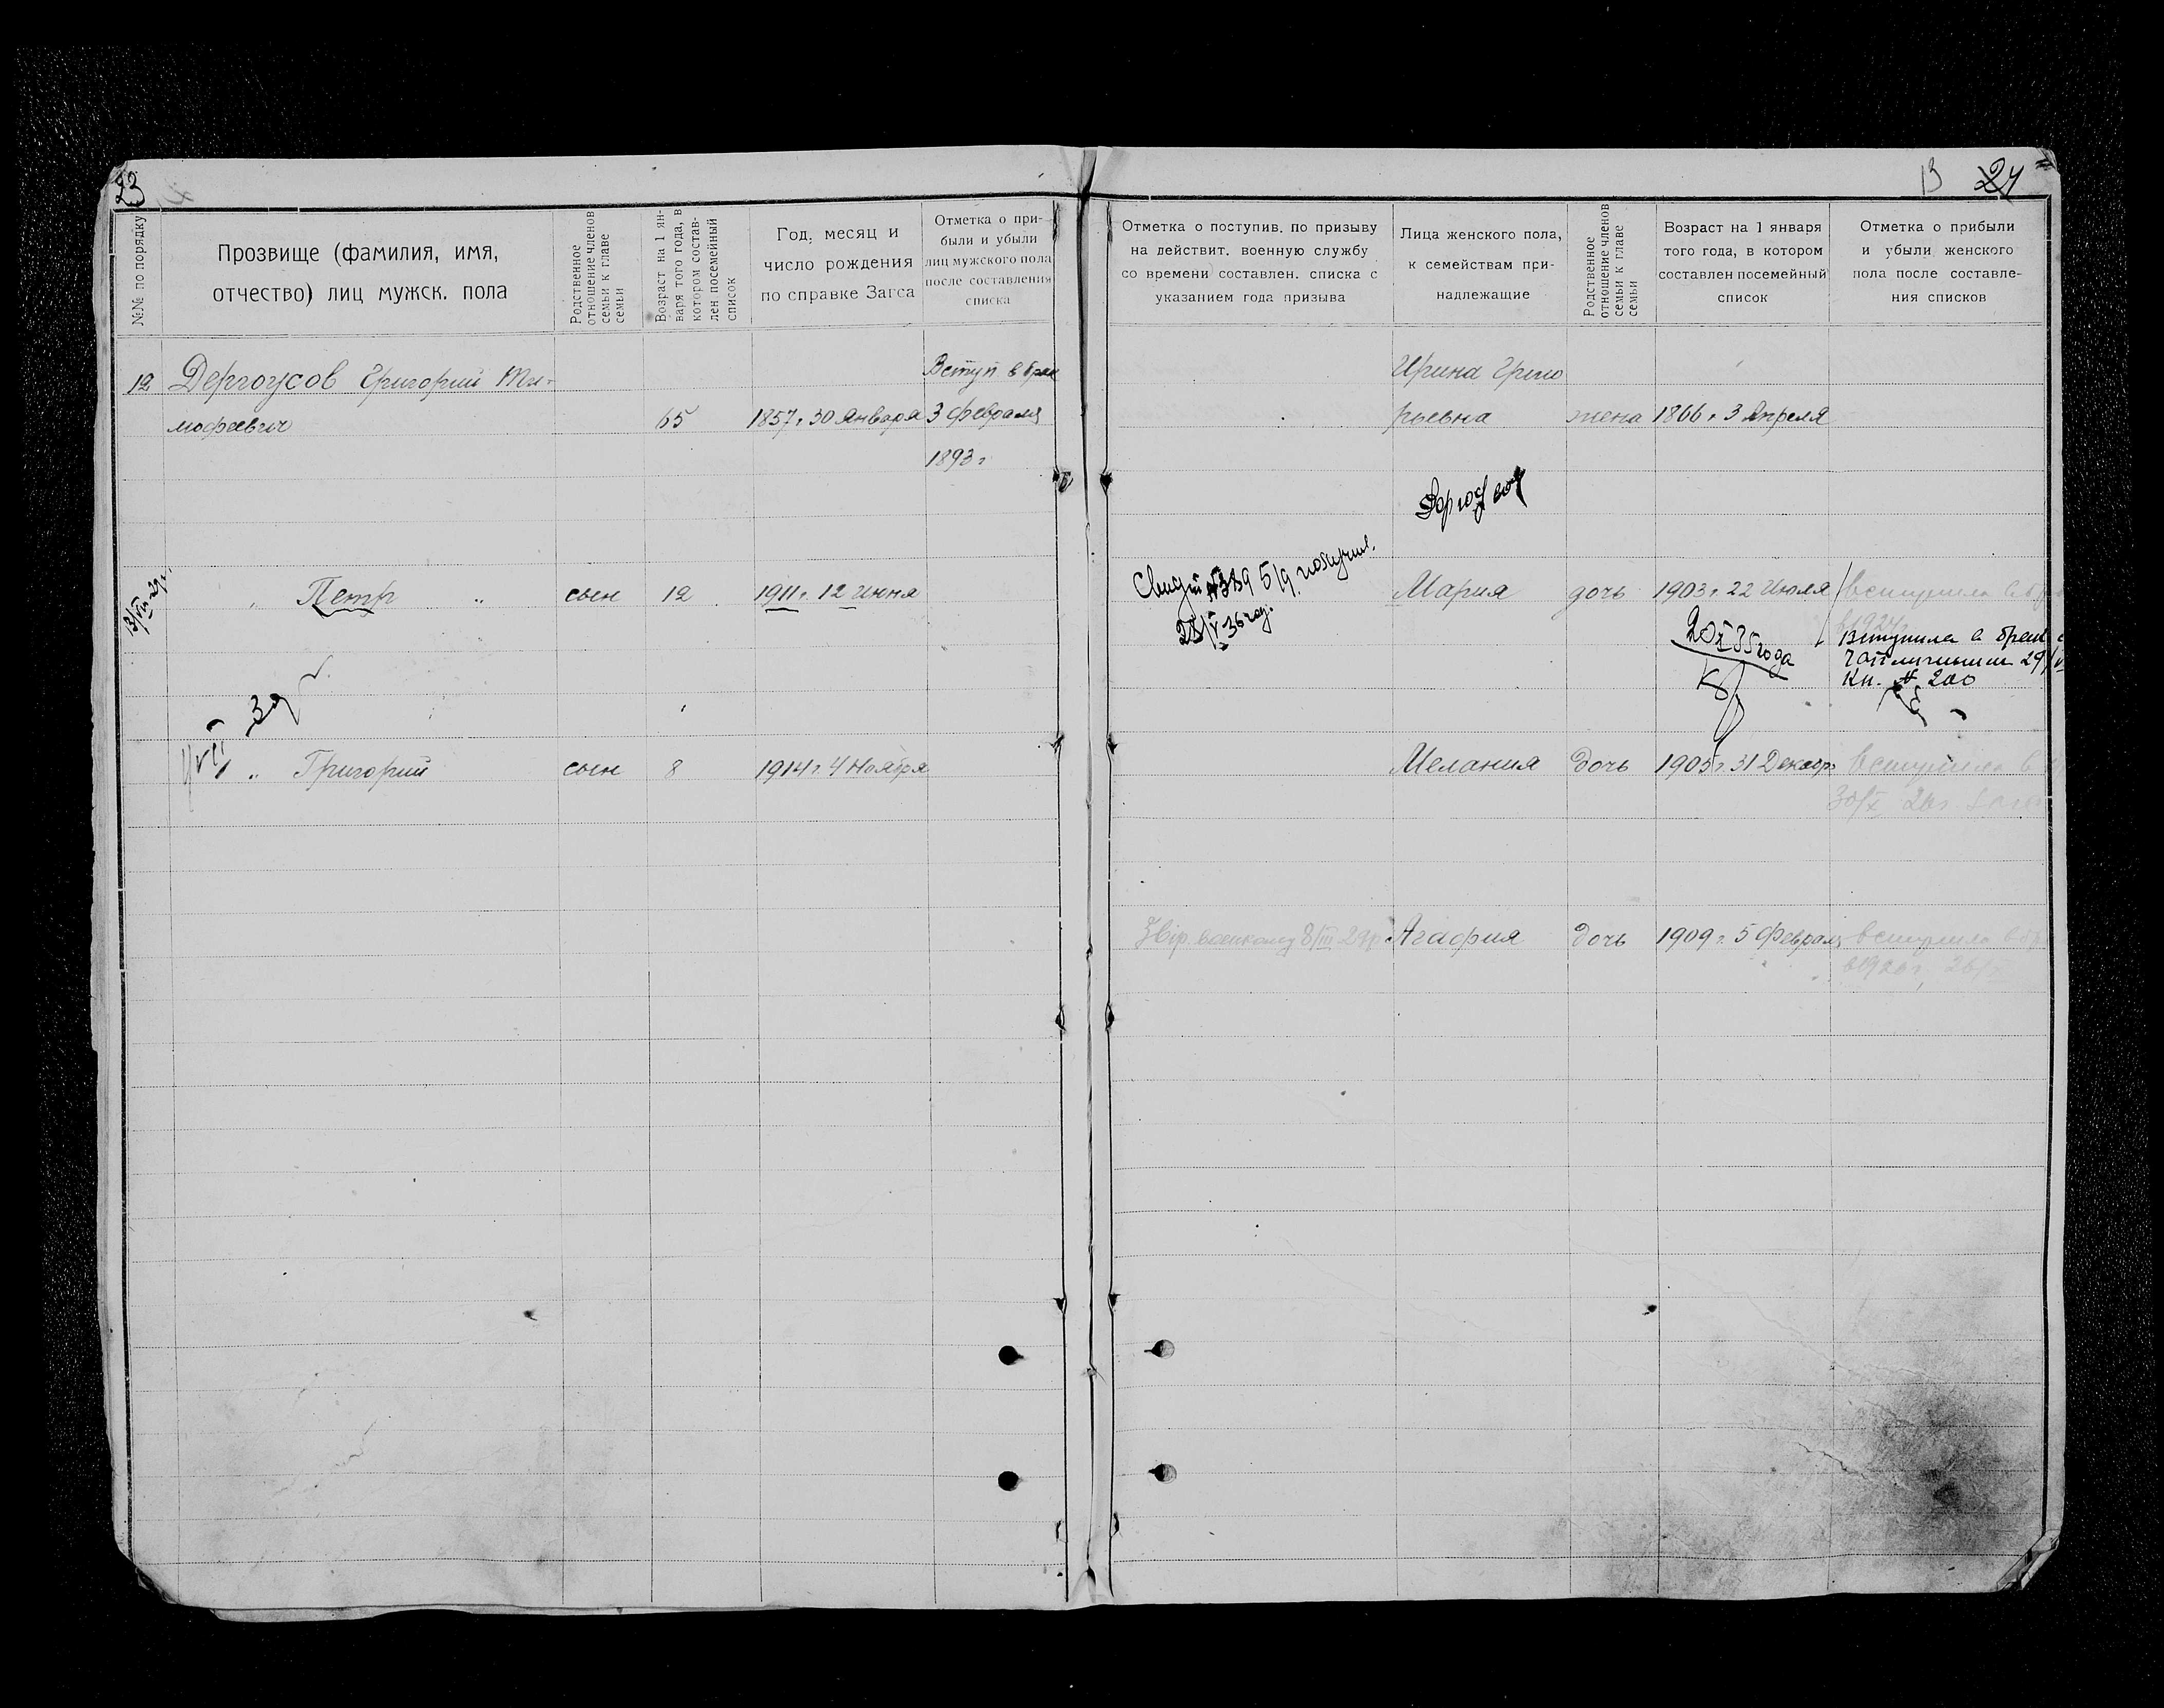 23
№№ по порядку
Прозвище (фамилия, имя,
отчество) лиц мужск. пола
Родственное
отношение членов
семьи к главе
семьи
Возраст на 1 ян-
варя того года, в
котором состав-
лен посемейный
список
Год, месяц и
число рождения
по справке Загса
Отметка о при-
были и убыли
лиц мужского пола
после составления
списка
12 Дергоусов Григорий Ти-
мофеевич 65 1857 г. 30 Января
Вступ. в брак
3 февраля
1893 г
13/VIII 29 г.
" Петр " сын 12 1911 г. 12 Июня
" Григорий сын 8 1914 г. 4 Ноября
13 24
Отметка о поступив. по призыву
на действит. военную службу
со времени составлен. списка с
указанием года призыва
Лица женского пола,
к семействам при-
надлежащие
Родственное
отношение членов
семьи к главе
семьи
Возраст на 1 января
того года, в котором
составлен посемейный
список
Отметка о прибыли
и убыли женского
пола после составле-
ния списков
Ирина Григо
рьевна жена 1866 г. 3 Апреля
получил.
28/V 36 год.
Мария дочь 1903 г. 22 Июля вступила в бр
в 1924
20 X 35 года
Вступила в брак с
29/V
Кн. № 200
Мелания дочь 1905 г. 31 Декабр вступила в
30/X 26 г.
8/III 29 р Агафия дочь 1909 г. 5 Февраля вступила в бр
в 1926 г. 26/